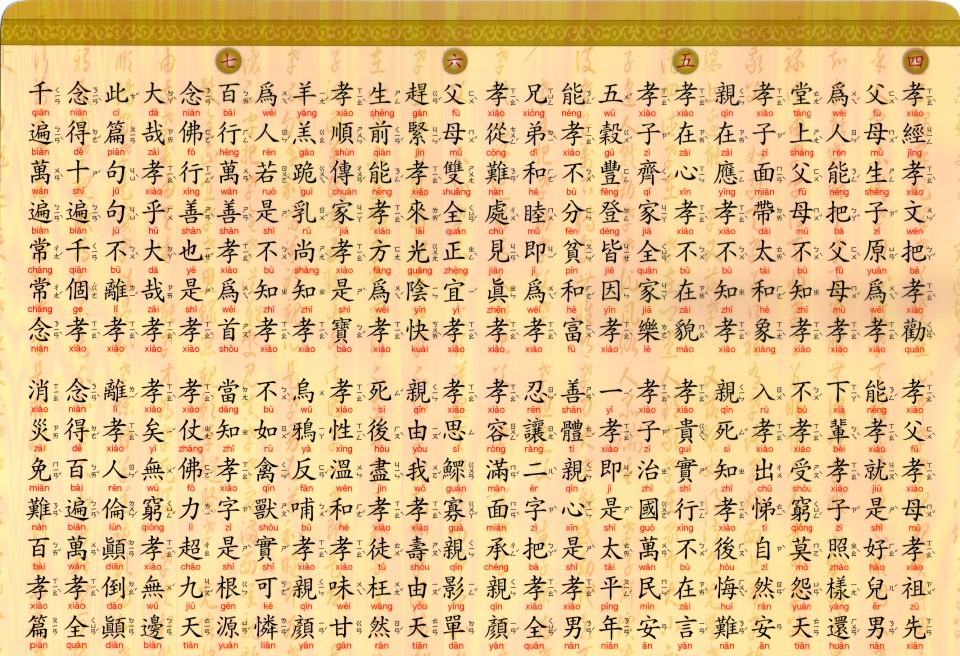 四
孝經孝文把孝勸 孝父孝母孝祖先
父母生子原爲孝 能孝就是好兒男
爲人能把父母孝 下輩孝子照樣還
堂上父母不知孝 不孝受窮莫怨天
孝子面帶太和象 入孝出悌自然安
親在應孝不知孝 親死知孝後悔難
五
孝在心孝不在貌 孝貴實行不在言
孝子齊家全家樂 孝子治國萬民安
五穀豐登皆因孝 一孝即是太平年
能孝不分貧和富 善體親心是孝男
兄弟和睦即爲孝 忍讓二字把孝全
孝從難處見眞孝 孝容滿面承親顏
六
父母雙全正宜孝 孝思鰥寡親影單
趕緊孝來光陰快 親由我孝壽由天
生前能孝方爲孝 死後盡孝徒枉然
孝順傳家孝是寶 孝性溫和孝味甘
羊羔跪乳尚知孝 烏鴉反哺孝親顏
爲人若是不知孝 不如禽獸實可憐
七
百行萬善孝爲首 當知孝字是根源
念佛行善也是孝 孝仗佛力超九天
大哉孝乎大哉孝 孝矣無窮孝無邊
此篇句句不離孝 離孝人倫顚倒顚
念得十遍千個孝 念得百遍萬孝全
千遍萬遍常常念孝 消災免難百孝篇